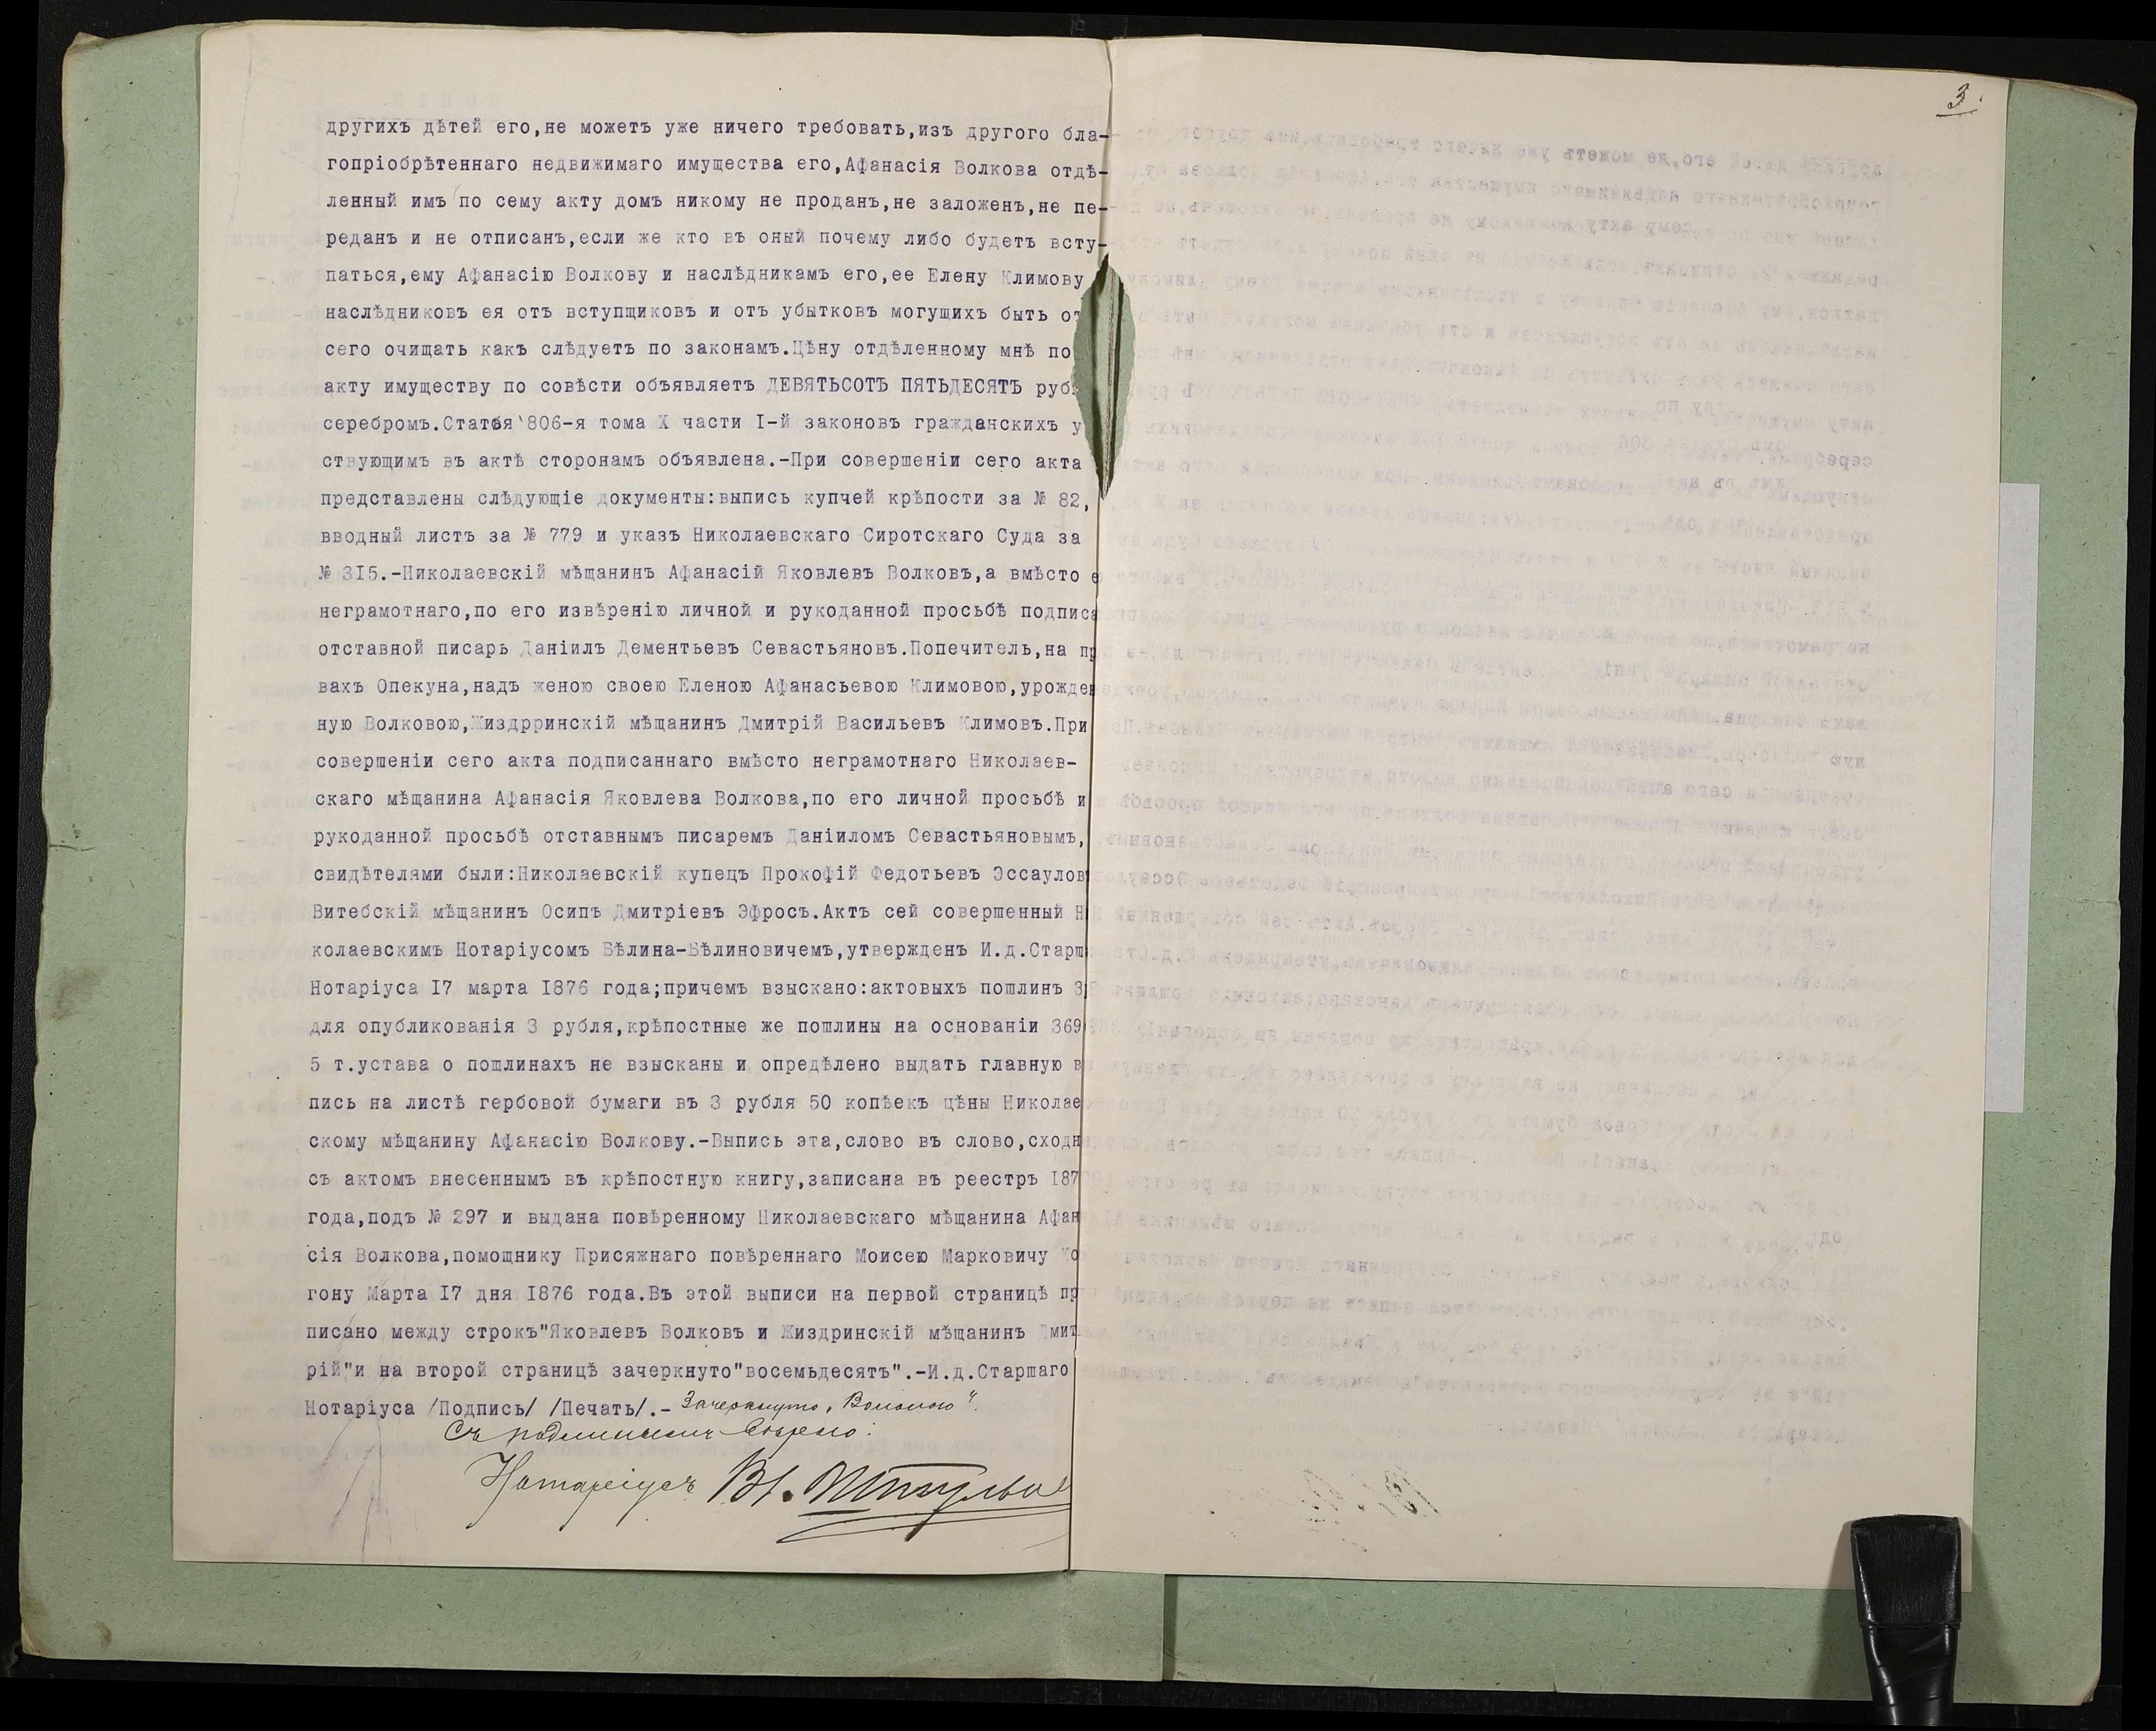 3.
другихъ дѣтей его,не можетъ уже ничего требовать,изъ другого бла-
гопріобрѣтеннаго недвижимаго имущества его,Афанасія Волкова отдѣ-
ленный имъ по сему акту домъ никому не проданъ,не заложенъ,не пе-
реданъ и не отписанъ,если же кто въ оный почему либо будетъ всту-
паться,ему Афанасію Волкову и наслѣдникамъ его,ее Елену Климову
наслѣдниковъ ея отъ вступщиковъ и отъ убытковъ могущихъ быть от
сего очищать какъ слѣдуетъ по законамъ.Цѣну отдѣленному мнѣ по
акту имуществу по совѣсти объявляетъ ДЕВЯТЬСОТЪ ПЯТЬДЕСЯТЪ руб
серебромъ.Статья 806-я тома X части I-й законовъ гражданскихъ у
ствующимъ въ актѣ сторонамъ объявлена.-При совершеніи сего акта
представлены слѣдующіе документы:выпись купчей крѣпости за № 82,
вводный листъ за № 779 и указъ Николаевскаго Сиротскаго Суда за
№ 3I5.-Николаевскій мѣщанинъ Афанасій Яковлевъ Волковъ,а вмѣсто е
неграмотнаго,по его извѣренію личной и рукоданной просьбѣ подписа
отставной писарь Даніилъ Дементьевъ Севастьяновъ.Попечитель,на пр
вахъ Опекуна,надъ женою своею Еленою Афанасьевою Климовою,урожден
ную Волковою,Жиздрринскій мѣщанинъ Дмитрій Васильевъ Климовъ.При
совершеніи сего акта подписаннаго вмѣсто неграмотнаго Николаев-
скаго мѣщанина Афанасія Яковлева Волкова,по его личной просьбѣ и
рукоданной просьбѣ отставнымъ писаремъ Даніиломъ Севастьяновымъ,
свидѣтелями были:Николаевскій купецъ Прокофій Федотьевъ Эссаулов
Витебскій мѣщанинъ Осипъ Дмитріевъ Эфросъ.Актъ сей совершенный Н
колаевскимъ Нотаріусомъ Бѣлина-Бѣлиновичемъ,утвержденъ И.д.Старш
Нотаріуса I7 марта I876 года;причемъ взыскано:актовыхъ пошлинъ 3
для опубликованія 3 рубля,крѣпостные же пошлины на основаніи 369
5 т.устава о пошлинахъ не взысканы и опредѣлено выдать главную в
пись на листѣ гербовой бумаги въ 3 рубля 50 копѣекъ цѣны Николае
скому мѣщанину Афанасію Волкову.-Выпись эта,слово въ слово,сходн
съ актомъ внесеннымъ въ крѣпостную книгу,записана въ реестръ I87
года,подъ № 297 и выдана повѣренному Николаевскаго мѣщанина Афан
сія Волкова,помощнику Присяжнаго повѣреннаго Моисею Марковичу Ко
гону Марта I7 дня I876 года.Въ этой выписи на первой страницѣ пр
писано между строкъ"Яковлевъ Волковъ и Жиздринскій мѣщанинъ Дмит
рій"и на второй страницѣ зачеркнуто"восемьдесятъ".-И.д.Старшаго
Нотаріуса /Подпись/ /Печать/.- Зачеркнуто
Съ подлиннымъ вѣрно:
Нотаріусъ Вл.